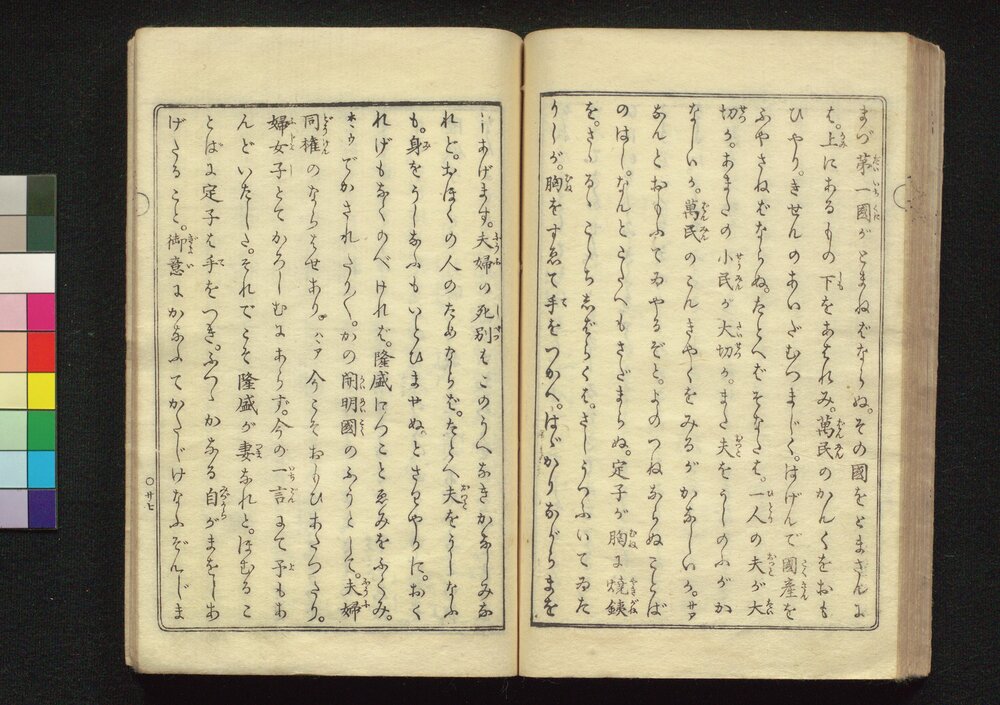 まづ第一國がとまねばならぬ。その國をとまさんに
は。上にあるもの下をあはれみ。萬民のかんくをおも
ひやり。きせんのあいだむつまじく。はげんで國産を
ふやさねばならぬ。たとへばそなたは。一人の夫が大
切か。あまたの小民が大切か。また夫をうしのふがか
なしいか。萬民のこんきやくをみるがかなしいか。サア
なんとおもふてゐやるぞと。よのつねならぬことば
のはし。なんとこたへもさだまらぬ。定子が胸に燒鋏
を。さゝるゝこゝちしばらくは。さしうつふいてゐた
りしが。胸をすゑて手をつかへ。はゞかりながらまを
しあげます。夫婦の死別はこのうへなきかなしみな
れど。おほくの人のためならば。たとへ夫をうしなふ
も。身をうしなふもいとひませぬ。とさはやかに。おく
れげもなくのべければ。隆盛につことゑみをふくみ。
ホヽウでかされたりく。かの開明國のふうとして。夫婦
同權のならはせあり。ハヽア今こそおもひあたつたり。
婦女子とてかろしむにあらず。今の一言にて予もあ
んどいたした。それでこそ隆盛が妻なれと。ほむるこ
とばに定子は手をつき。ふつゝかなる自がまをしあ
げたること。御意にかなふてかたじけなふぞんじま
〇廿七